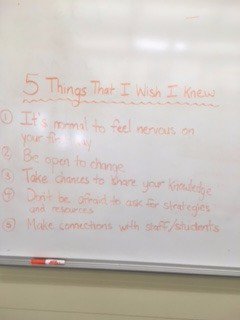 5 Things That I Wish I Knew
① It's normal to feel nervous on
your first day
② Be open to change
③ Take chances to share your knowledge
④ Don't be afraid to ask for strategies
and resources
⑤ Make connections with staff/students